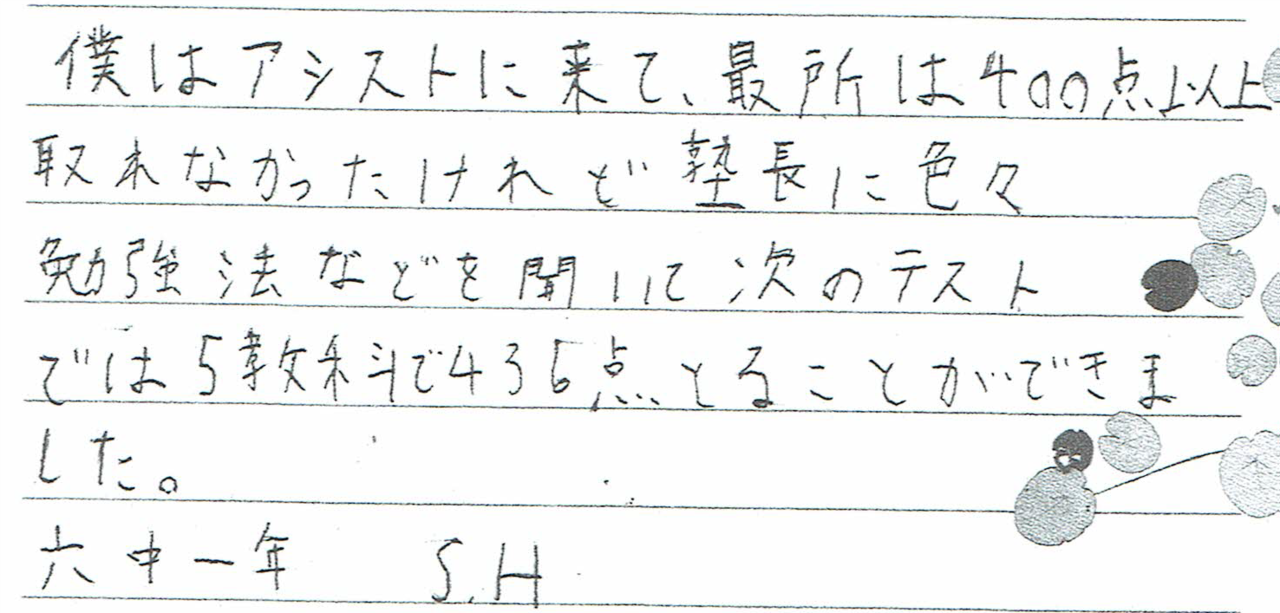 僕はアシストに来て、最所は400点以上
取れなかったけれど塾長に色々
勉強法などを聞いて次のテスト
では5教科で436点とることができま
した。
六中一年 S.H